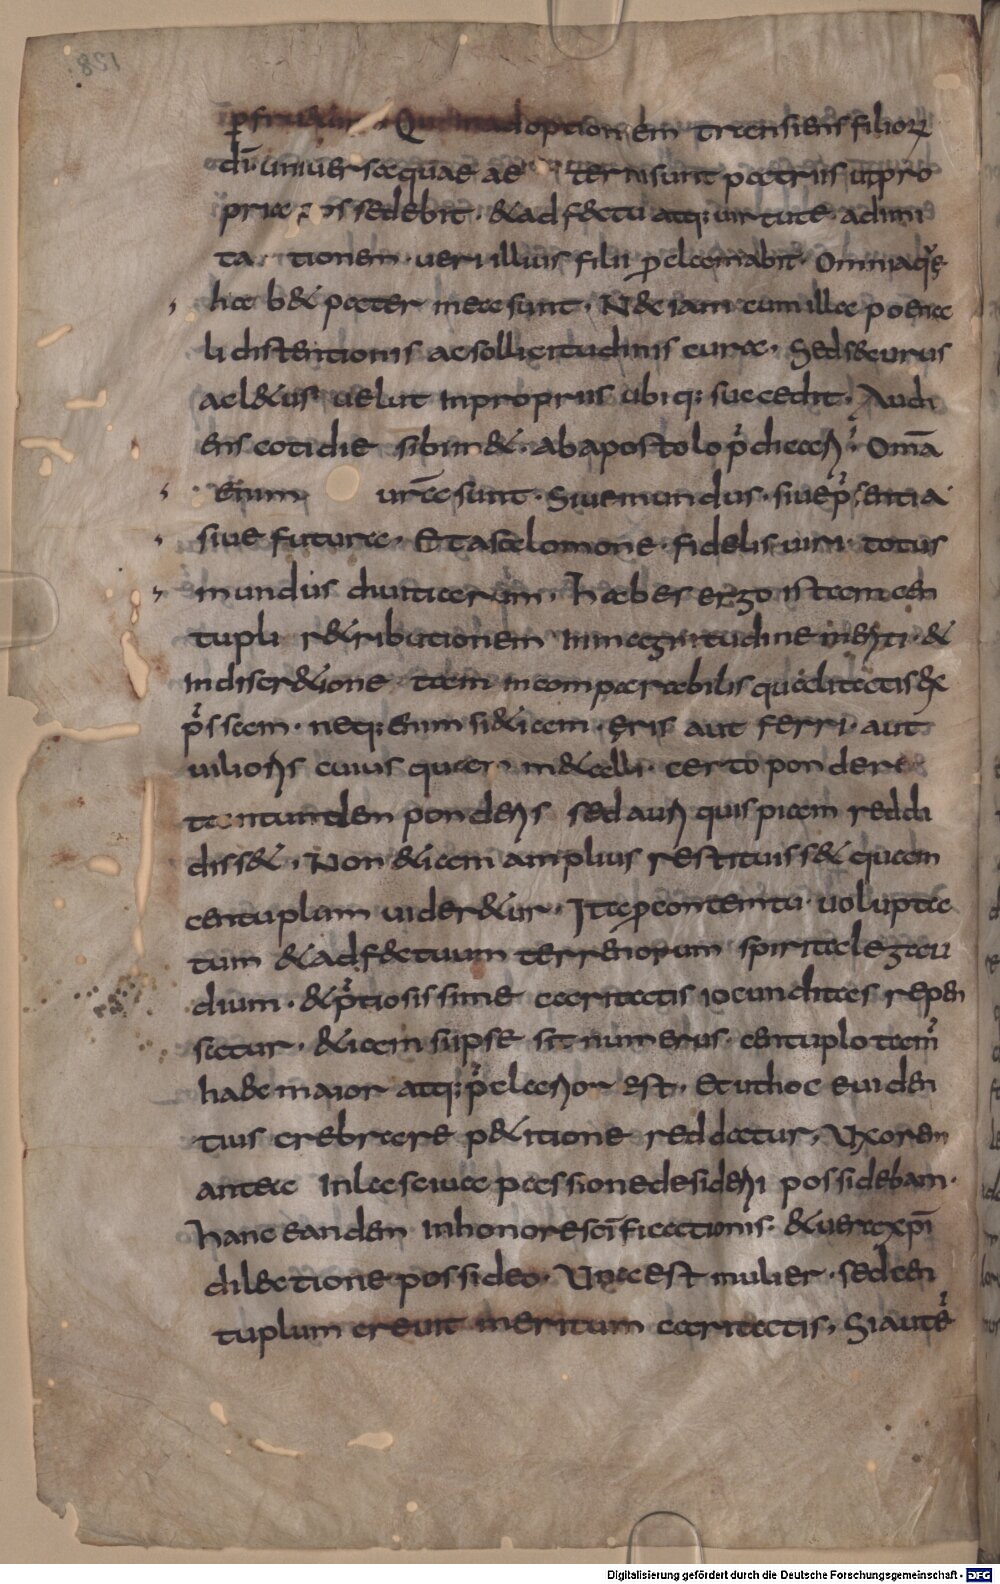 138
perfruitur. Qui in adoptionem transiens filiorum
dī. universa quae ae ternisunt patris ut pro
pria possedebit. &adf&ctu atq; virtute ad imi
ta tionem. ueri illius filii p̱clamabit. Omniaq̄
ha b& pater mea sunt. N& iam cum illa poena
li distentionis ac sollicitudinis cura. Sed securus
ac l&us uelut inpropriis ubiq; succedit. Audi
ens cotidie sibim&. ab apostolo p̄dicar̄. Om̄a
enim ur̄a sunt. Siue mundus. siue p̄sentia
siue futura. Et a salomone. fidelis uiri. totus
mundus diuitiarum. Habes ergo istam cen
tupli r&ributionem in magnitudine meriti. &
indiscr&ione tam incomparabilis qualitatis ex
p̄ssam. neq; enim si &iam. ęris aut ferri. aut
uilioris cuius quam m&alli. certo pondere
tantunden ponderis sed auri quispiam reddi
diss&. Non &iam amplius restituiss& quam
centuplum uider&ur. Ita p̱contemtu uoluptā
tum & adf&ctuum terrenorum spiritale gau
dium. & p̄tiosissime caritatis iocunditas repen
satur. &iam si ipse sit numerus. centuplo tam̄
hac maior atq; p̄clarior est. Et ut hoc euiden
tius crebrare p&itione reddatur. Vxorem
antea in lasciuae passione desiderii possidebam.
hanc eanden in honore sc̄ificationis. & uera xp̄i
dilectione possideo. Vna est mulier. sed cen
tuplum creuit meritum caritatis. Si aute
Digitalisierung gefördert durch die Deutsche Forschungsgemeinschaft - DFG